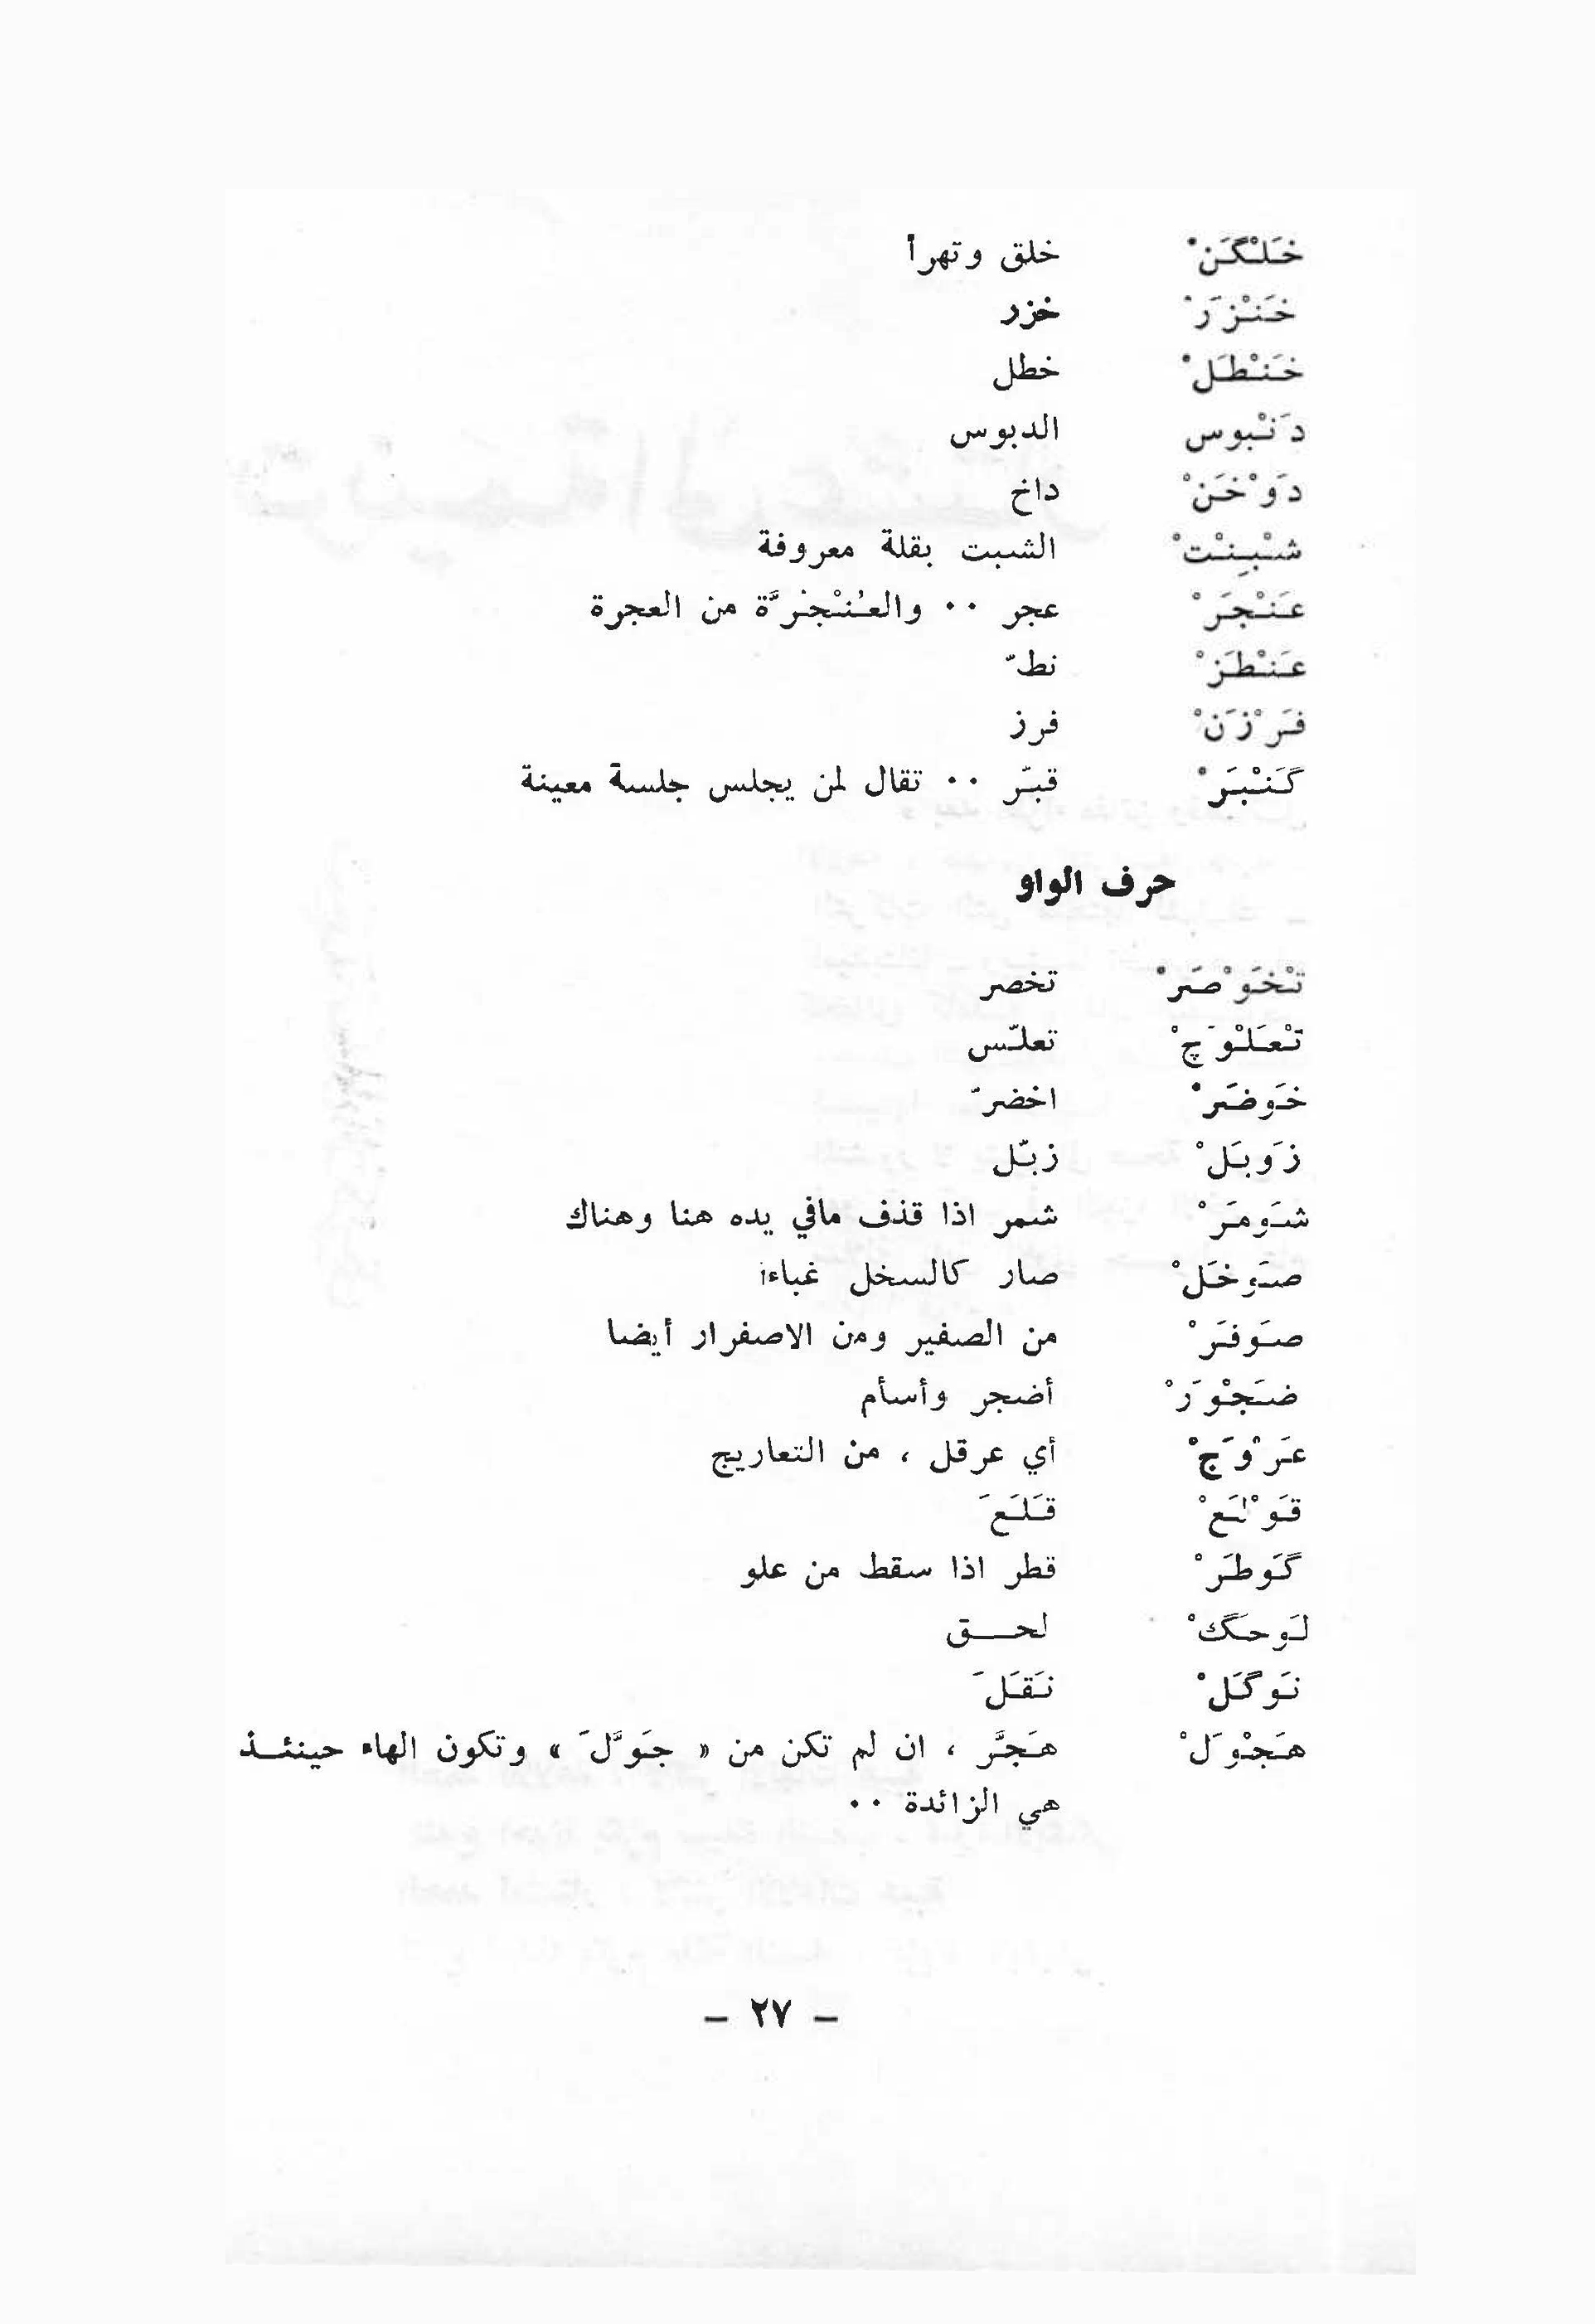 خَلْگَنْ خلق وتهرأ
خَنْزَرْ خزر
خَنْطَلْ خطل
دَنْبوس الدبوس
دَوْخَنْ داخ
شْبِنْتْ الشبت بقلة معروفة
عَنْجَرْ عجر ٠٠ والعُنْجُرَّة من العجرة
عَنْطَزْ نطّ
فَرْزَنْ فرز
گَنْبَرْ قبّر ٠٠ تقال لمن يجلس جلسة معينة
حرف الواو
تْخَوْصَرْ تخصر
تْعَلْوَچْ تعلّس
خَوضَرْ اخضرّ
زَوبَلْ زبّل
شَومَرْ شمر اذا قذف مافي يده هنا وهناك
صَوخَلْ صار كالسخل غباءا
صَوفَرْ من الصفير ومن الاصفرار أيضا
ضَجْوَرْ أضجر وأسأم
عَرْوَجْ أي عرقل ، من التعاريج
قَوْلَعْ قَلَعَ
گَوطَرْ قطر اذا سقط من علو
لَوحَگْ لحــق
نَوگَلْ نَقَلَ
هَجْوَلْ هَجَّر ، ان لم تكن من « جَوَّلَ » وتكون الهاء حينئـذ
هي الزائدة ٠٠
– ٢٧ –